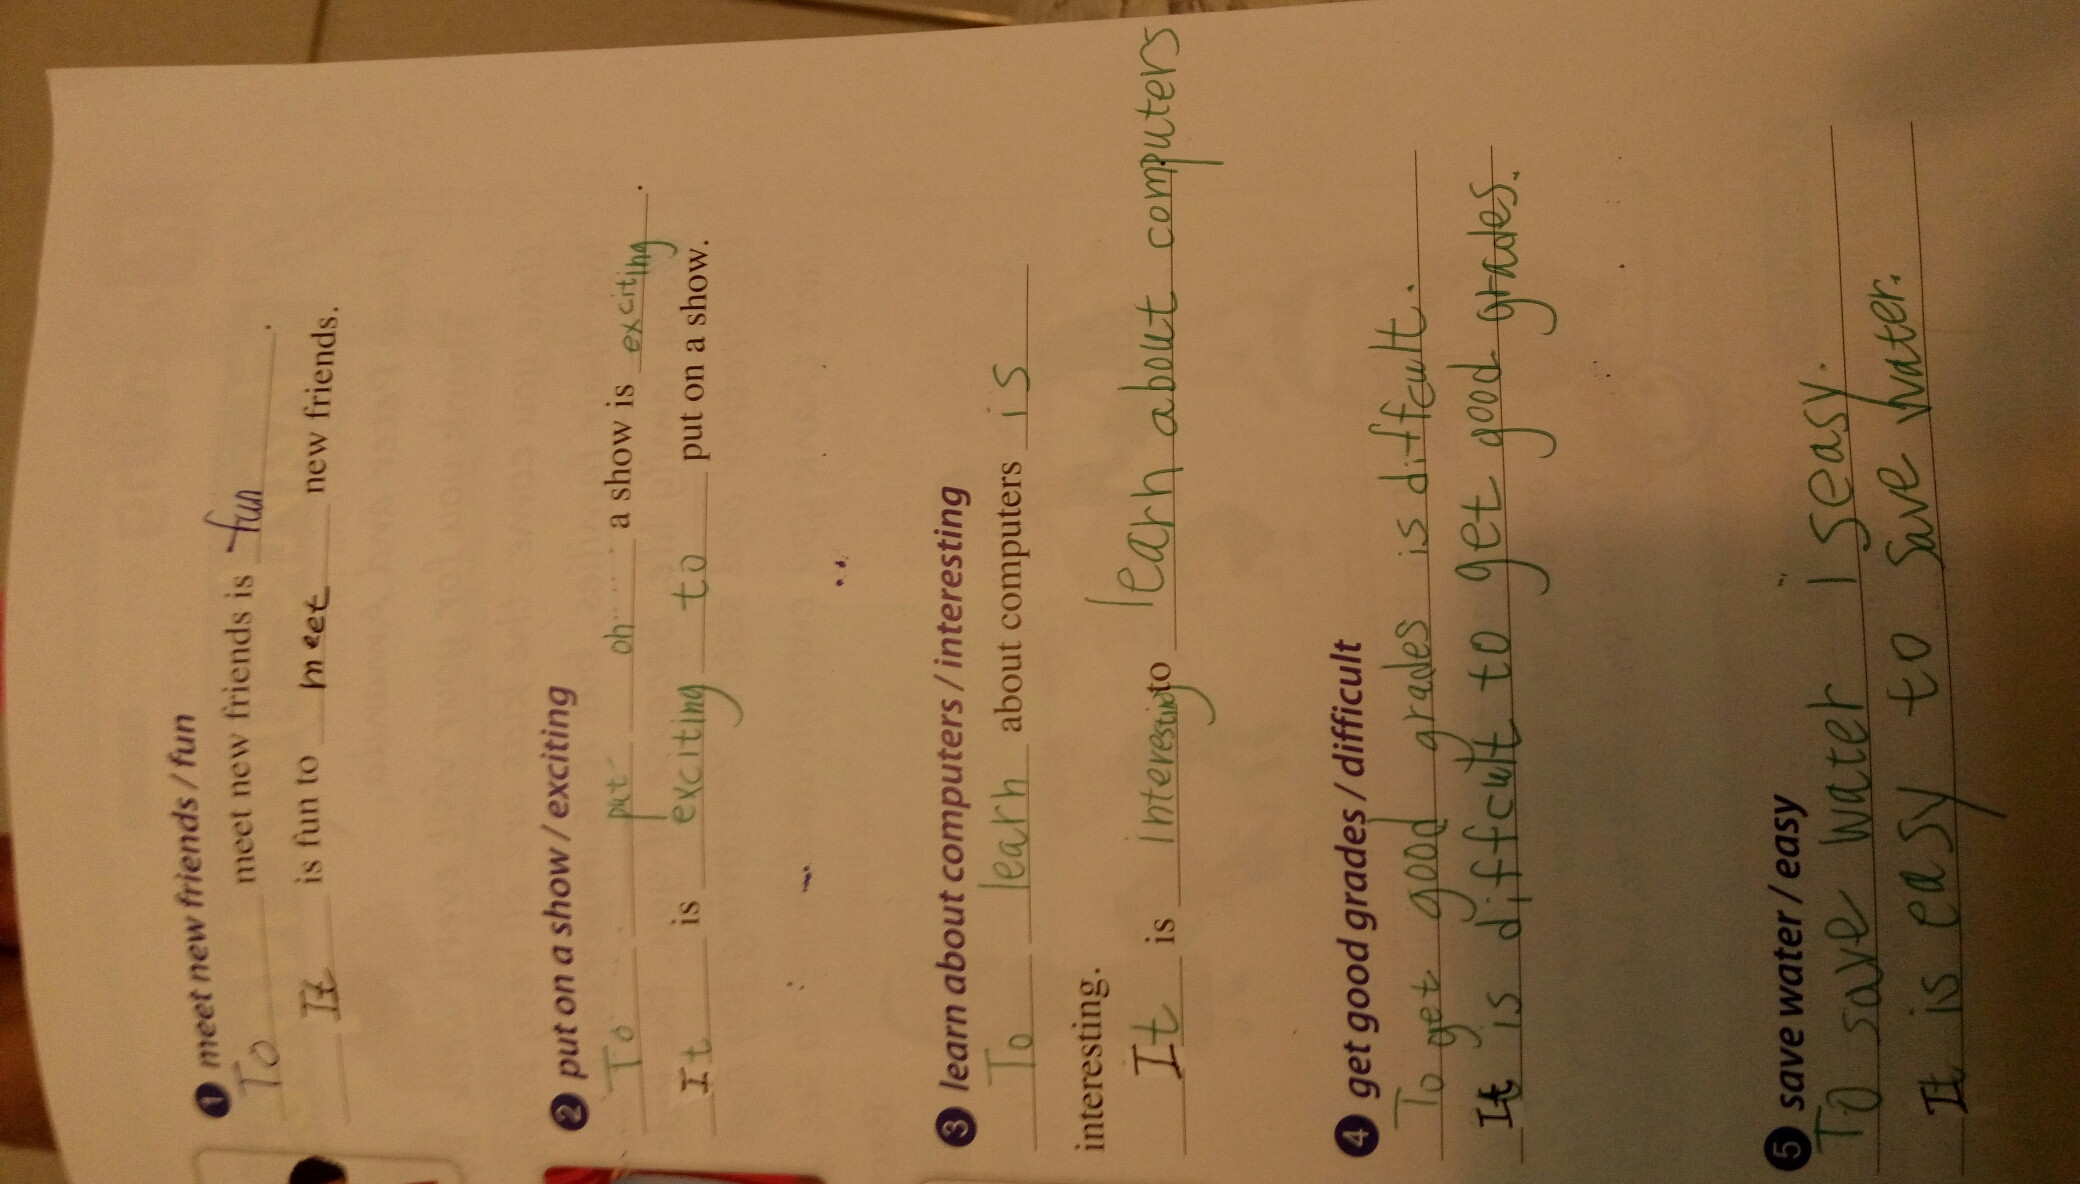 1 meet new friends / fun
To meet new friends is fun.
It is fun to meet new friends.
2 put on a show / exciting
To put on a show is exciting.
It is exciting to put on a show.
3 learn about computers / interesting
To learn about computers is
interesting.
It is interesting to learn about computers
4 get good grades / difficult
To get good grades is diffcult.
It is diffcult to get good grades.
5 save water / easy
To save water is easy.
It is easy to save water.